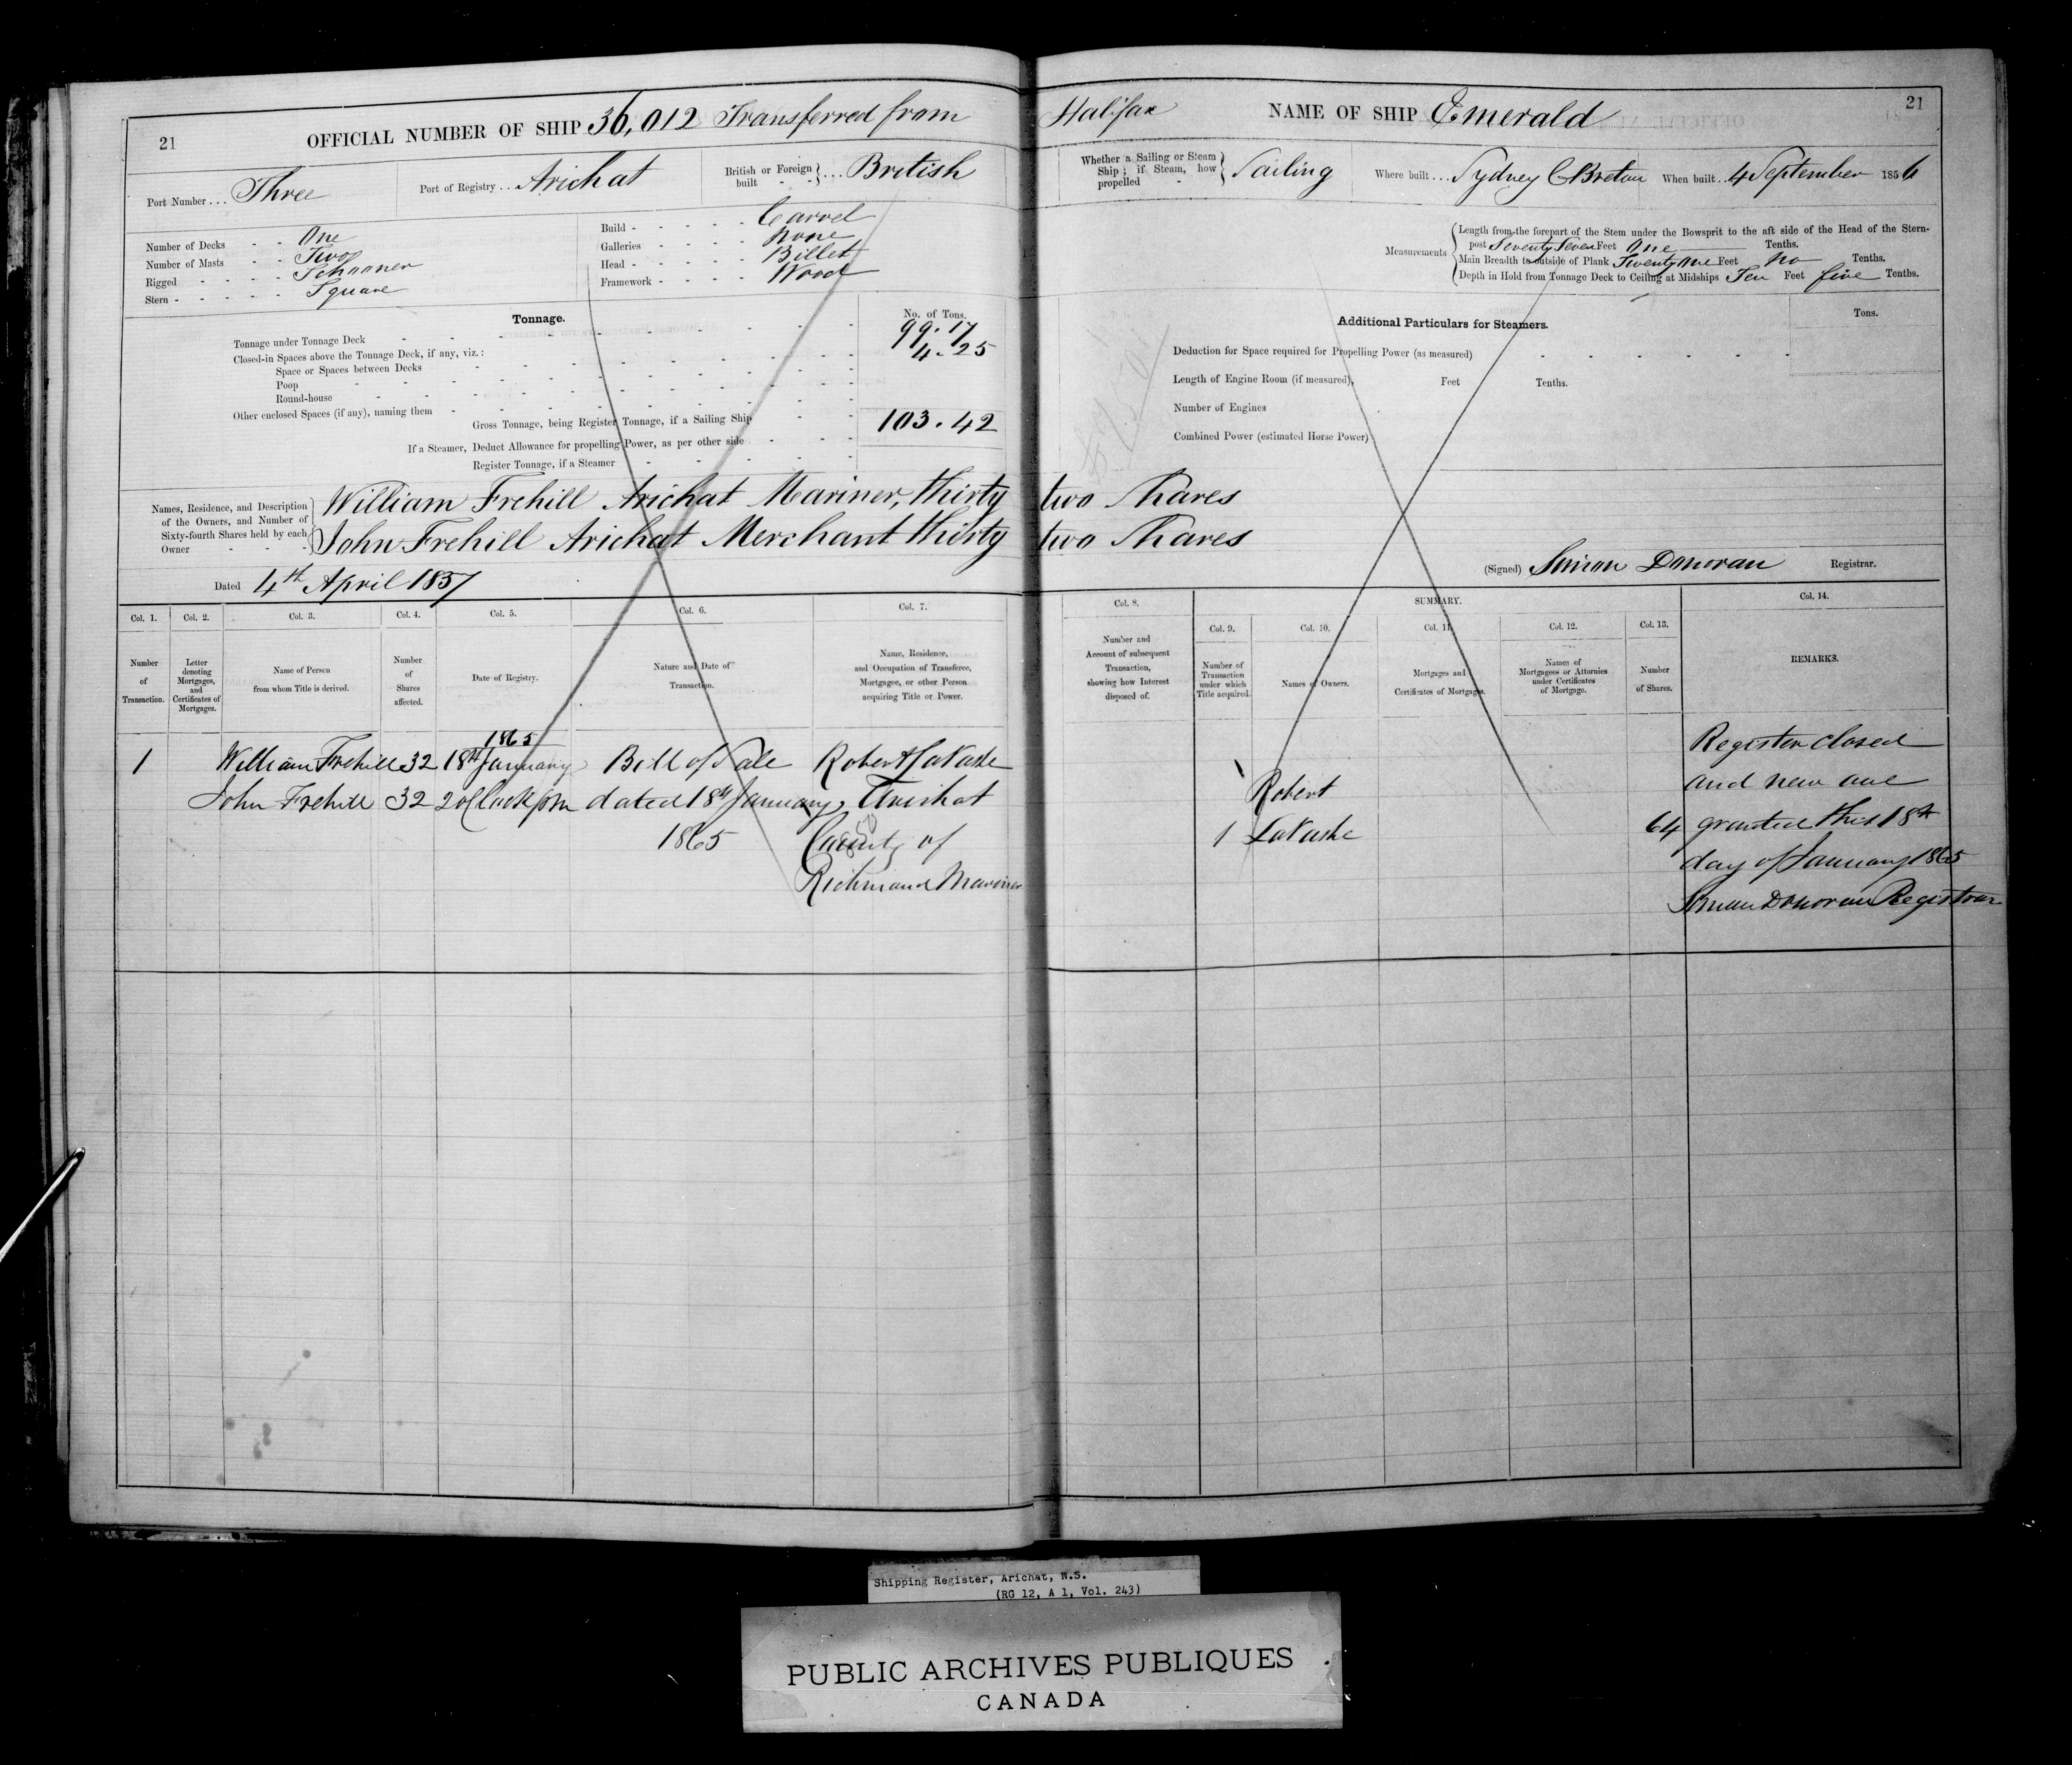 21
OFFICIAL NUMBER OF SHIP 36,012 Transferred from Halifax
NAME OF SHIP Emerald
21
Port Number . . . Three
Port of Registry . . Arichat
British or Foreign built - - } . . . British
Whether a Sailing or Steam Ship ; if Steam, how propelled - } Sailing
Where built . . . Sydney C Breton
When built . . 4 September 1856
Number of Decks - - One
Number of Masts - - Two
Rigged - - - - Schooner
Stern - - - - - Square
Build - - - - - Carvel
Galleries - - - - None
Head - - - - - Billet
Framework - - - - Wood
Measurements
Length from the forepart of the Stem under the Bowsprit to the aft side of the Head of the Stern-
post Seventy Seven Feet One Tenths.
Main Breadth to outside of Plank Twenty one Feet No Tenths.
Depth in Hold from Tonnage Deck to Ceiling at Midships Ten Feet five Tenths.
Tonnage.
No. of Tons.
Tonnage under Tonnage Deck - - 99.17
Closed-in Spaces above the Tonnage Deck, if any, viz. : 4.25
Space or Spaces between Decks
Poop
Round-house
Other enclosed Spaces (if any), naming them
Gross Tonnage, being Register Tonnage, if a Sailing Ship - - 103.42
If a Steamer, Deduct Allowance for propelling Power, as per other side
Register Tonnage, if a Steamer
Additional Particulars for Steamers.
Tons.
Deduction for Space required for Propelling Power (as measured)
Length of Engine Room (if measured), Feet Tenths.
Number of Engines
Combined Power (estimated Horse Power)
Names, Residence, and Description
of the Owners, and Number of
Sixty-fourth Shares held by each
Owner
William Frehill Arichat Mariner, thirty two Shares
John Frehill Arichat Merchant thirty two Shares
Dated 4th April 1857
(Signed) Simon Donovan Registrar.
Col. 1.
Number of Transaction.
Col. 2.
Letter denoting Mortgages, and Certificates of Mortgages.
Col. 3.
Name of Person from whom Title is derived.
Col. 4.
Number of Shares affected.
Col. 5.
Date of Registry.
Col. 6.
Nature and Date of Transaction.
Col. 7.
Name, Residence, and Occupation of Transferee, Mortgagee, or other Person acquiring Title or Power.
Col. 8.
Number and Account of subsequent Transaction, showing how Interest disposed of.
SUMMARY.
Col. 9.
Number of Transaction under which Title acquired.
Col. 10.
Names of Owners.
Col. 11.
Mortgages and Certificates of Mortgages.
Col. 12.
Names of Mortgagees or Attornies under Certificates of Mortgage.
Col. 13.
Number of Shares.
Col. 14.
REMARKS.
1865
1 William Frehill 32 18th January Bill of Sale Robert LaVashe
John Frehill 32 2 o Clock p m dated 18th January Arichat
1865 County of
Richmond Mariner
Robert
1 LaVashe 64
Register closed
and new one
granted this 18th
day of January 1865
Simon Donovan Registrar
Shipping Register, Arichat, N.S.
(RG 12, A 1, Vol. 243)
PUBLIC ARCHIVES PUBLIQUES
CANADA